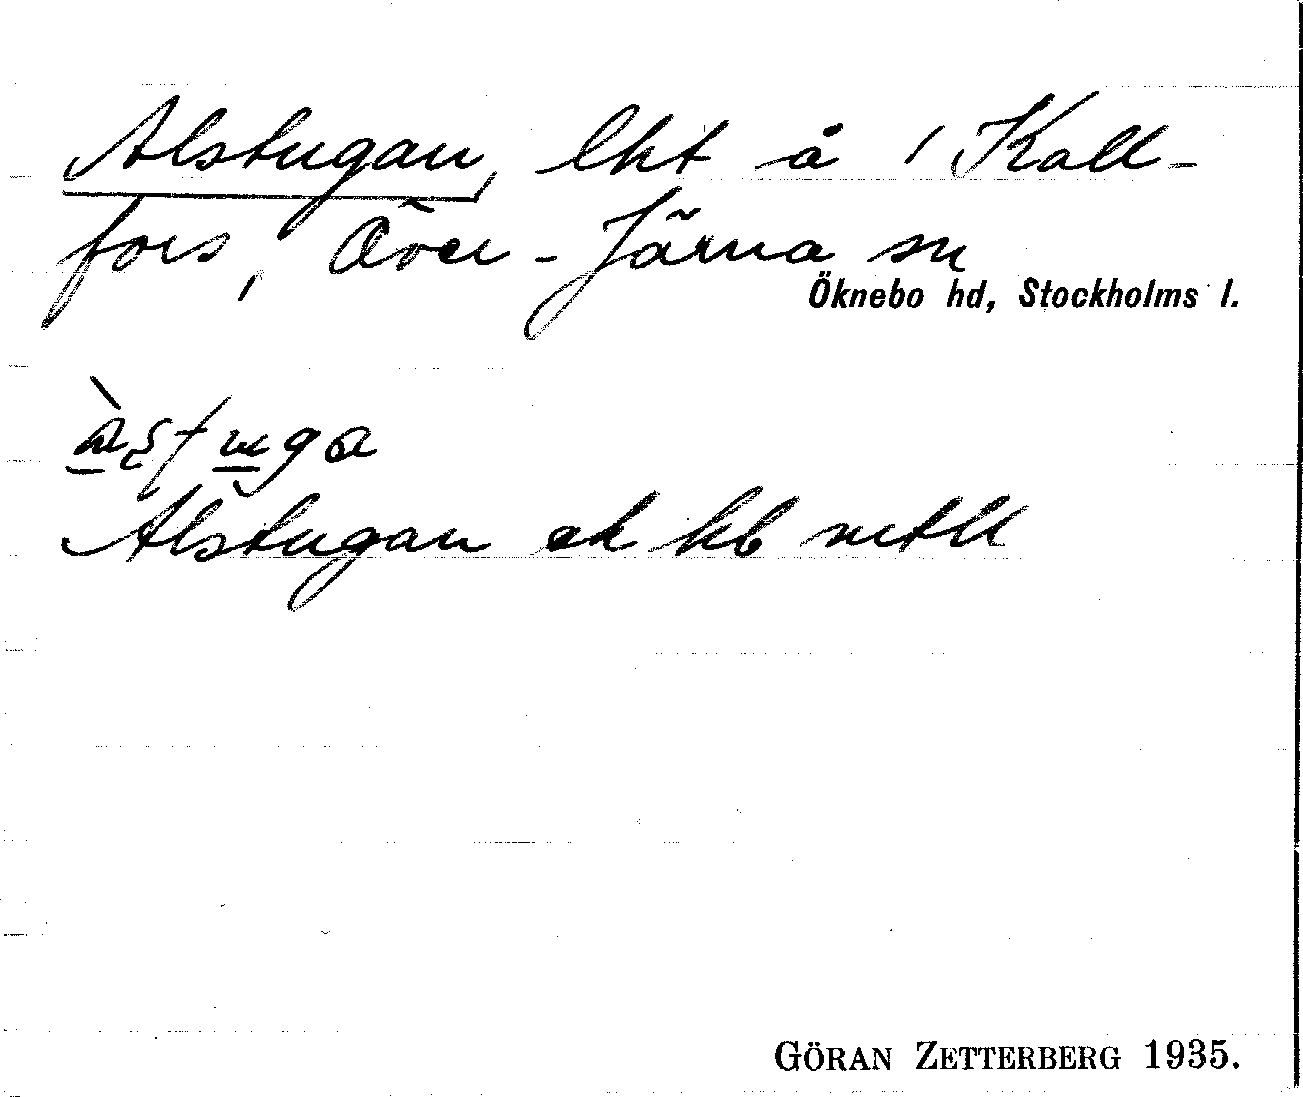 Alstugan, lht å 1 Kall-
fors, Över-Järna sn
Öknebo hd, Stockholms l.
Alstugan ek kb
GÖRAN ZETTERBERG 1935.